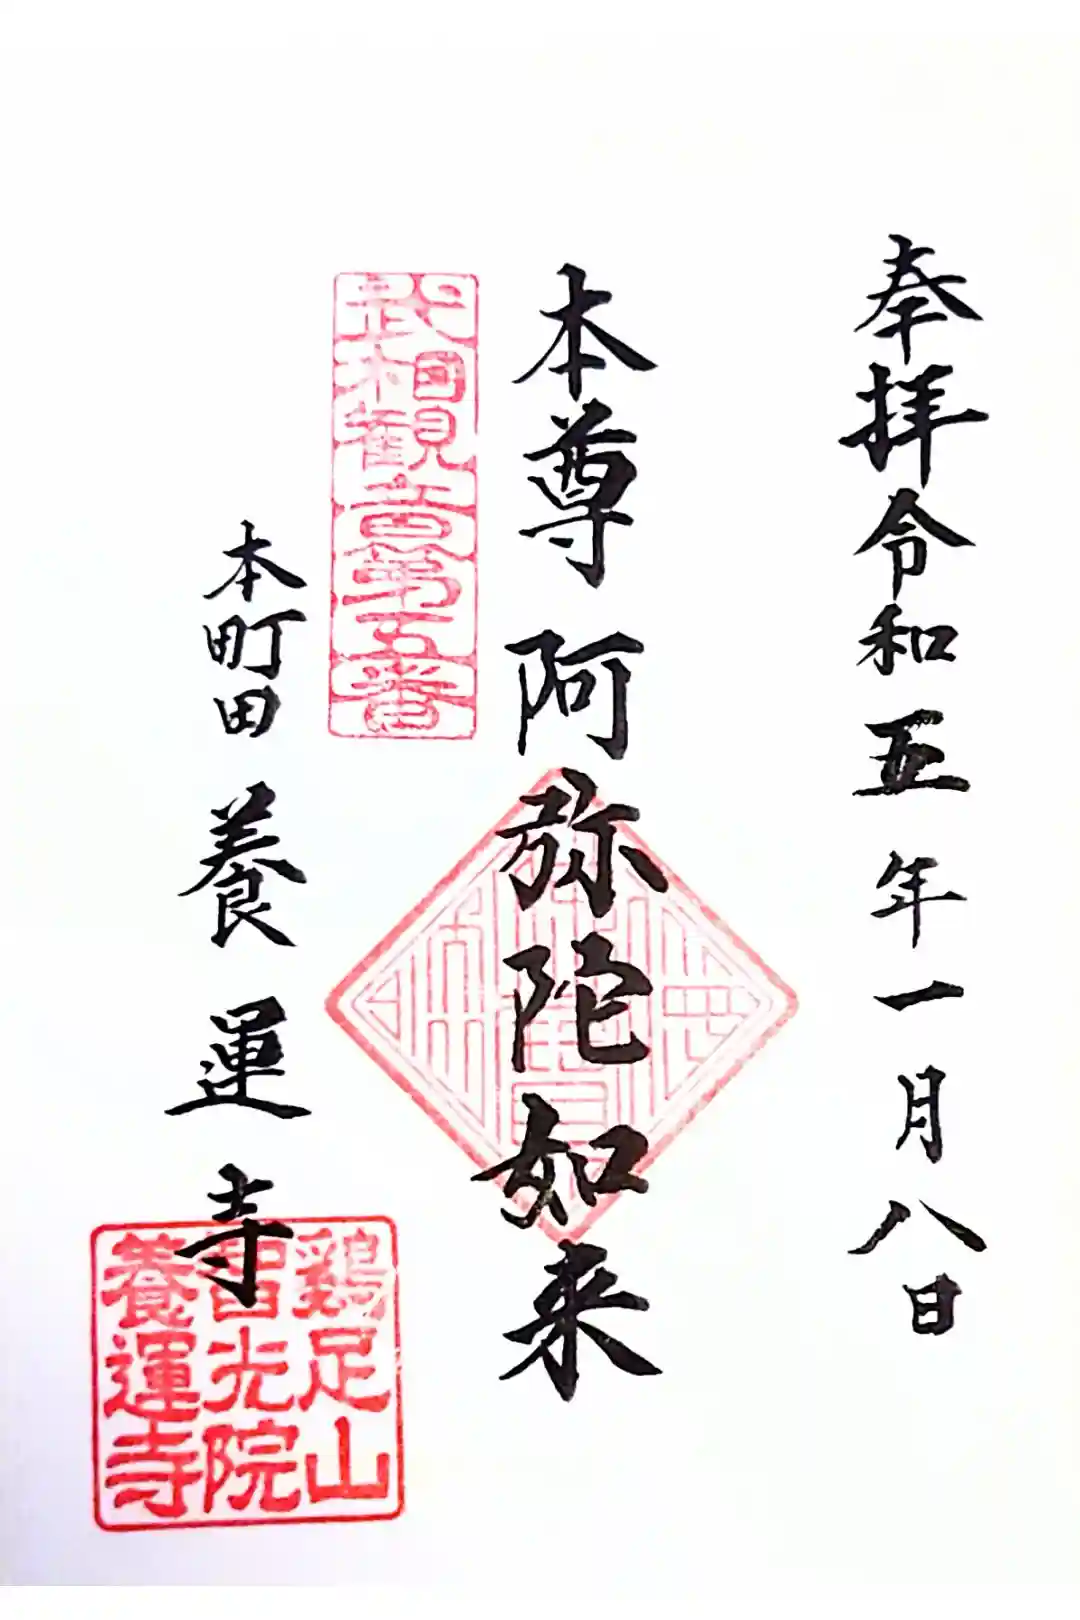 奉拝令和五年一月八日
本尊阿弥陀如来
武相観音第五番
本町田養運寺
鷄足山
智光院
養運寺